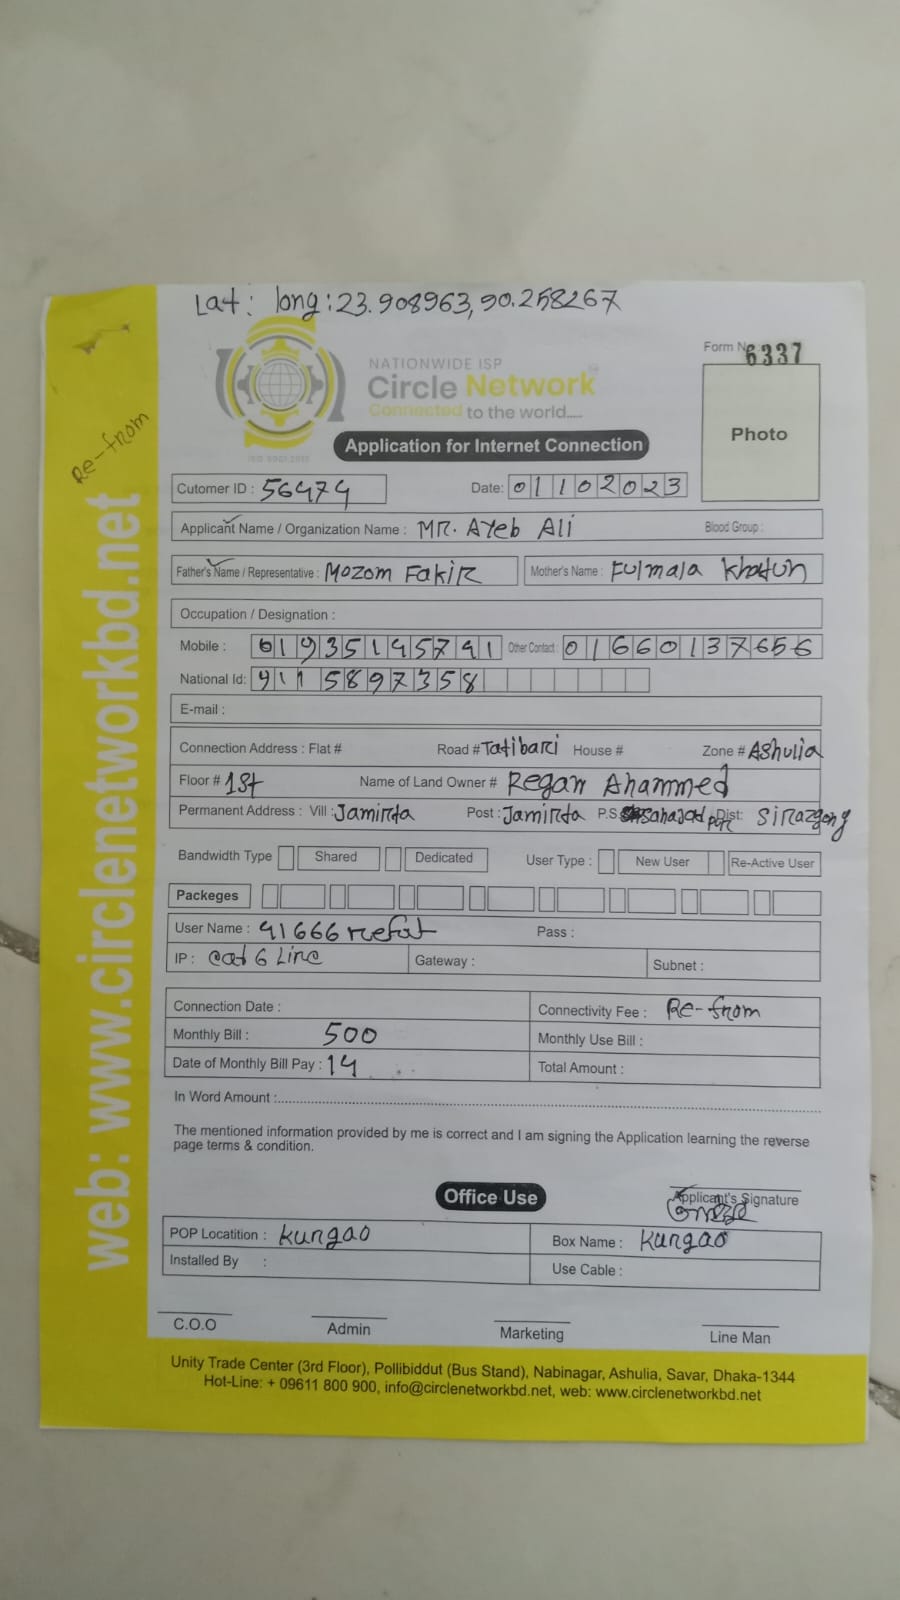 Lat: long: 23.908963, 90.258267
Form N 6337
NATIONWIDE ISP
Circle Network
Connected to the world.....
ISO 9001:2015
Application for Internet Connection
Photo
Re-from
web: www.circlenetworkbd.net
Cutomer ID : 56474 Date: 01102023
Applicant Name / Organization Name : MR. Ayeb Ali Blood Group :
Father's Name / Representative : Mozom Fakir Mother's Name : Fulmala Khatun
Occupation / Designation :
Mobile : 01935145741 Other Contact : 01660137656
National Id: 9115897358
E-mail :
Connection Address : Flat # Road # Tatibari House # Zone # Ashulia
Floor # 1st Name of Land Owner # Regan Ahammed
Permanent Address : Vill : Jamirta Post : Jamirta P.S Dist: Sirazgong
Bandwidth Type Shared Dedicated User Type : New User Re-Active User
Packeges
User Name : 41666refat Pass :
IP : cat 6 Line Gateway : Subnet :
Connection Date : Connectivity Fee : Re-from
Monthly Bill : 500 Monthly Use Bill :
Date of Monthly Bill Pay : 14 Total Amount :
In Word Amount :
The mentioned information provided by me is correct and I am signing the Application learning the reverse
page terms & condition.
Office Use Applicant's Signature
POP Locatition : Kungao Box Name : Kungao
Installed By : Use Cable :
C.O.O Admin Marketing Line Man
Unity Trade Center (3rd Floor), Pollibiddut (Bus Stand), Nabinagar, Ashulia, Savar, Dhaka-1344
Hot-Line: + 09611 800 900, info@circlenetworkbd.net, web: www.circlenetworkbd.net